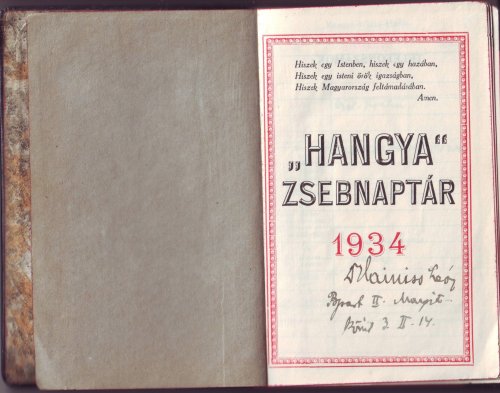 Hiszek egy Istenben, hiszek egy hazában,
Hiszek egy isteni örök igazságban,
Hiszek Magyarország feltámadásában.
Amen.
„HANGYA“
ZSEBNAPTÁR
1934
II. Margit
3. II. 14.